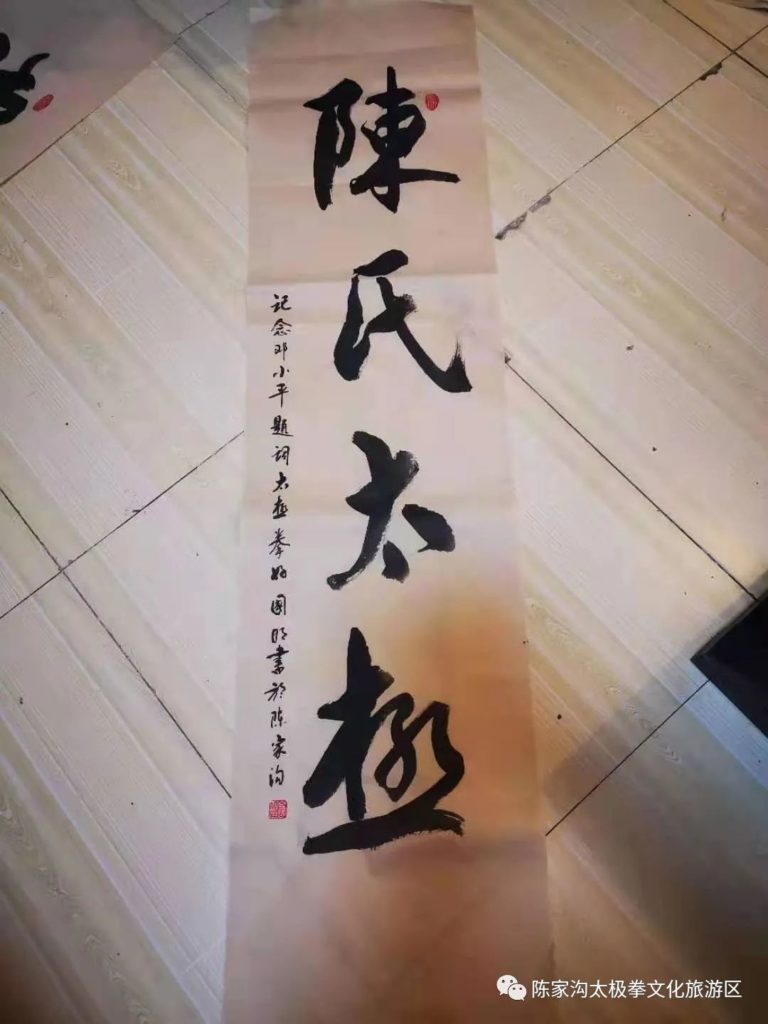 陳氏太極
记念邓小平题词太极拳好國明書於陈家沟
陈家沟太极拳文化旅游区